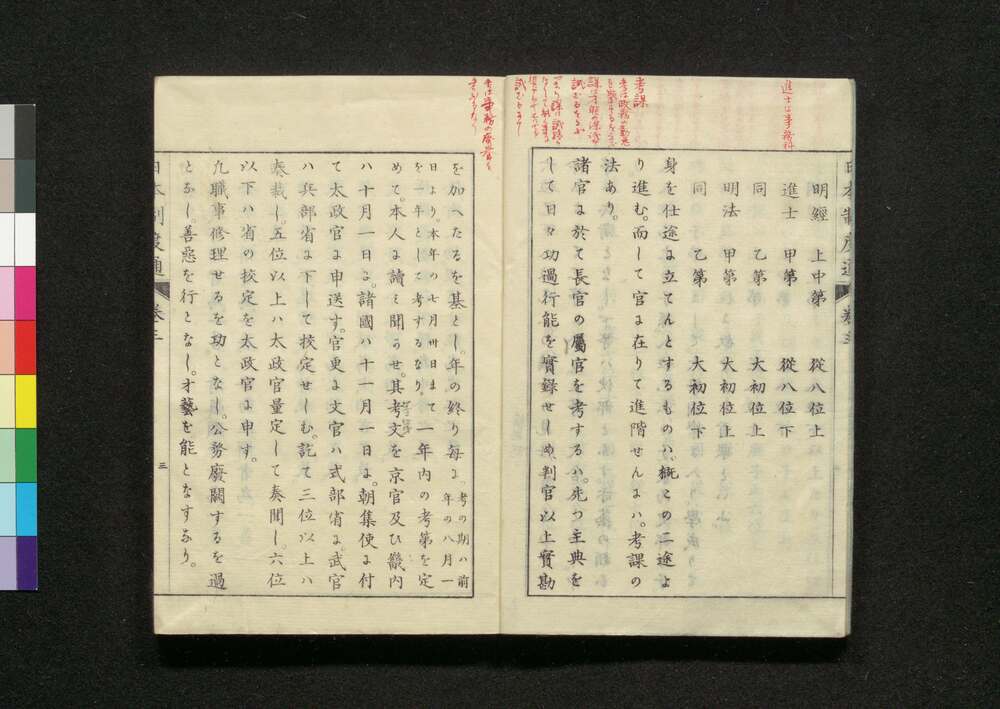 進士は事務科
日本制度通 卷三
明經 上中第 從八位上
進士 甲第 從八位下
同 乙第 大初位上
明法 甲第 大初位上
同 乙第 大初位下
身を仕途に立てんとするものハ、概とこの二途よ
り進む。而して官に在りて進階せんにハ。考課の
法あり。
考課
諸官に於て長官の屬官を考するハ。先つ主典を
して日々功過行能を實錄せしめ。判官以上實勘
を加へたるを基とし。年の終り每に、考の期ハ前年の八月一
日より。本年の七月卅日まてを一年として考するなり。一年內の考第を定
めて。本人に讀ミ聞かせ。其考文を京官及ひ畿內
ハ十月一日に。諸國ハ十一月一日に。朝集使に付
て太政官に申送す。官更に文官ハ式部省に。武官
ハ兵部省に下して挍定せしむ。訖て三位以上ハ
奏裁し。五位以上ハ太政官量定して奏聞し。六位
以下ハ省の挍定を太政官に申す。
凡職事修理せるを功となし。公務廢闕するを過
となし。善惡を行となし。才藝を能となすなり。
日本制度通 卷三
三